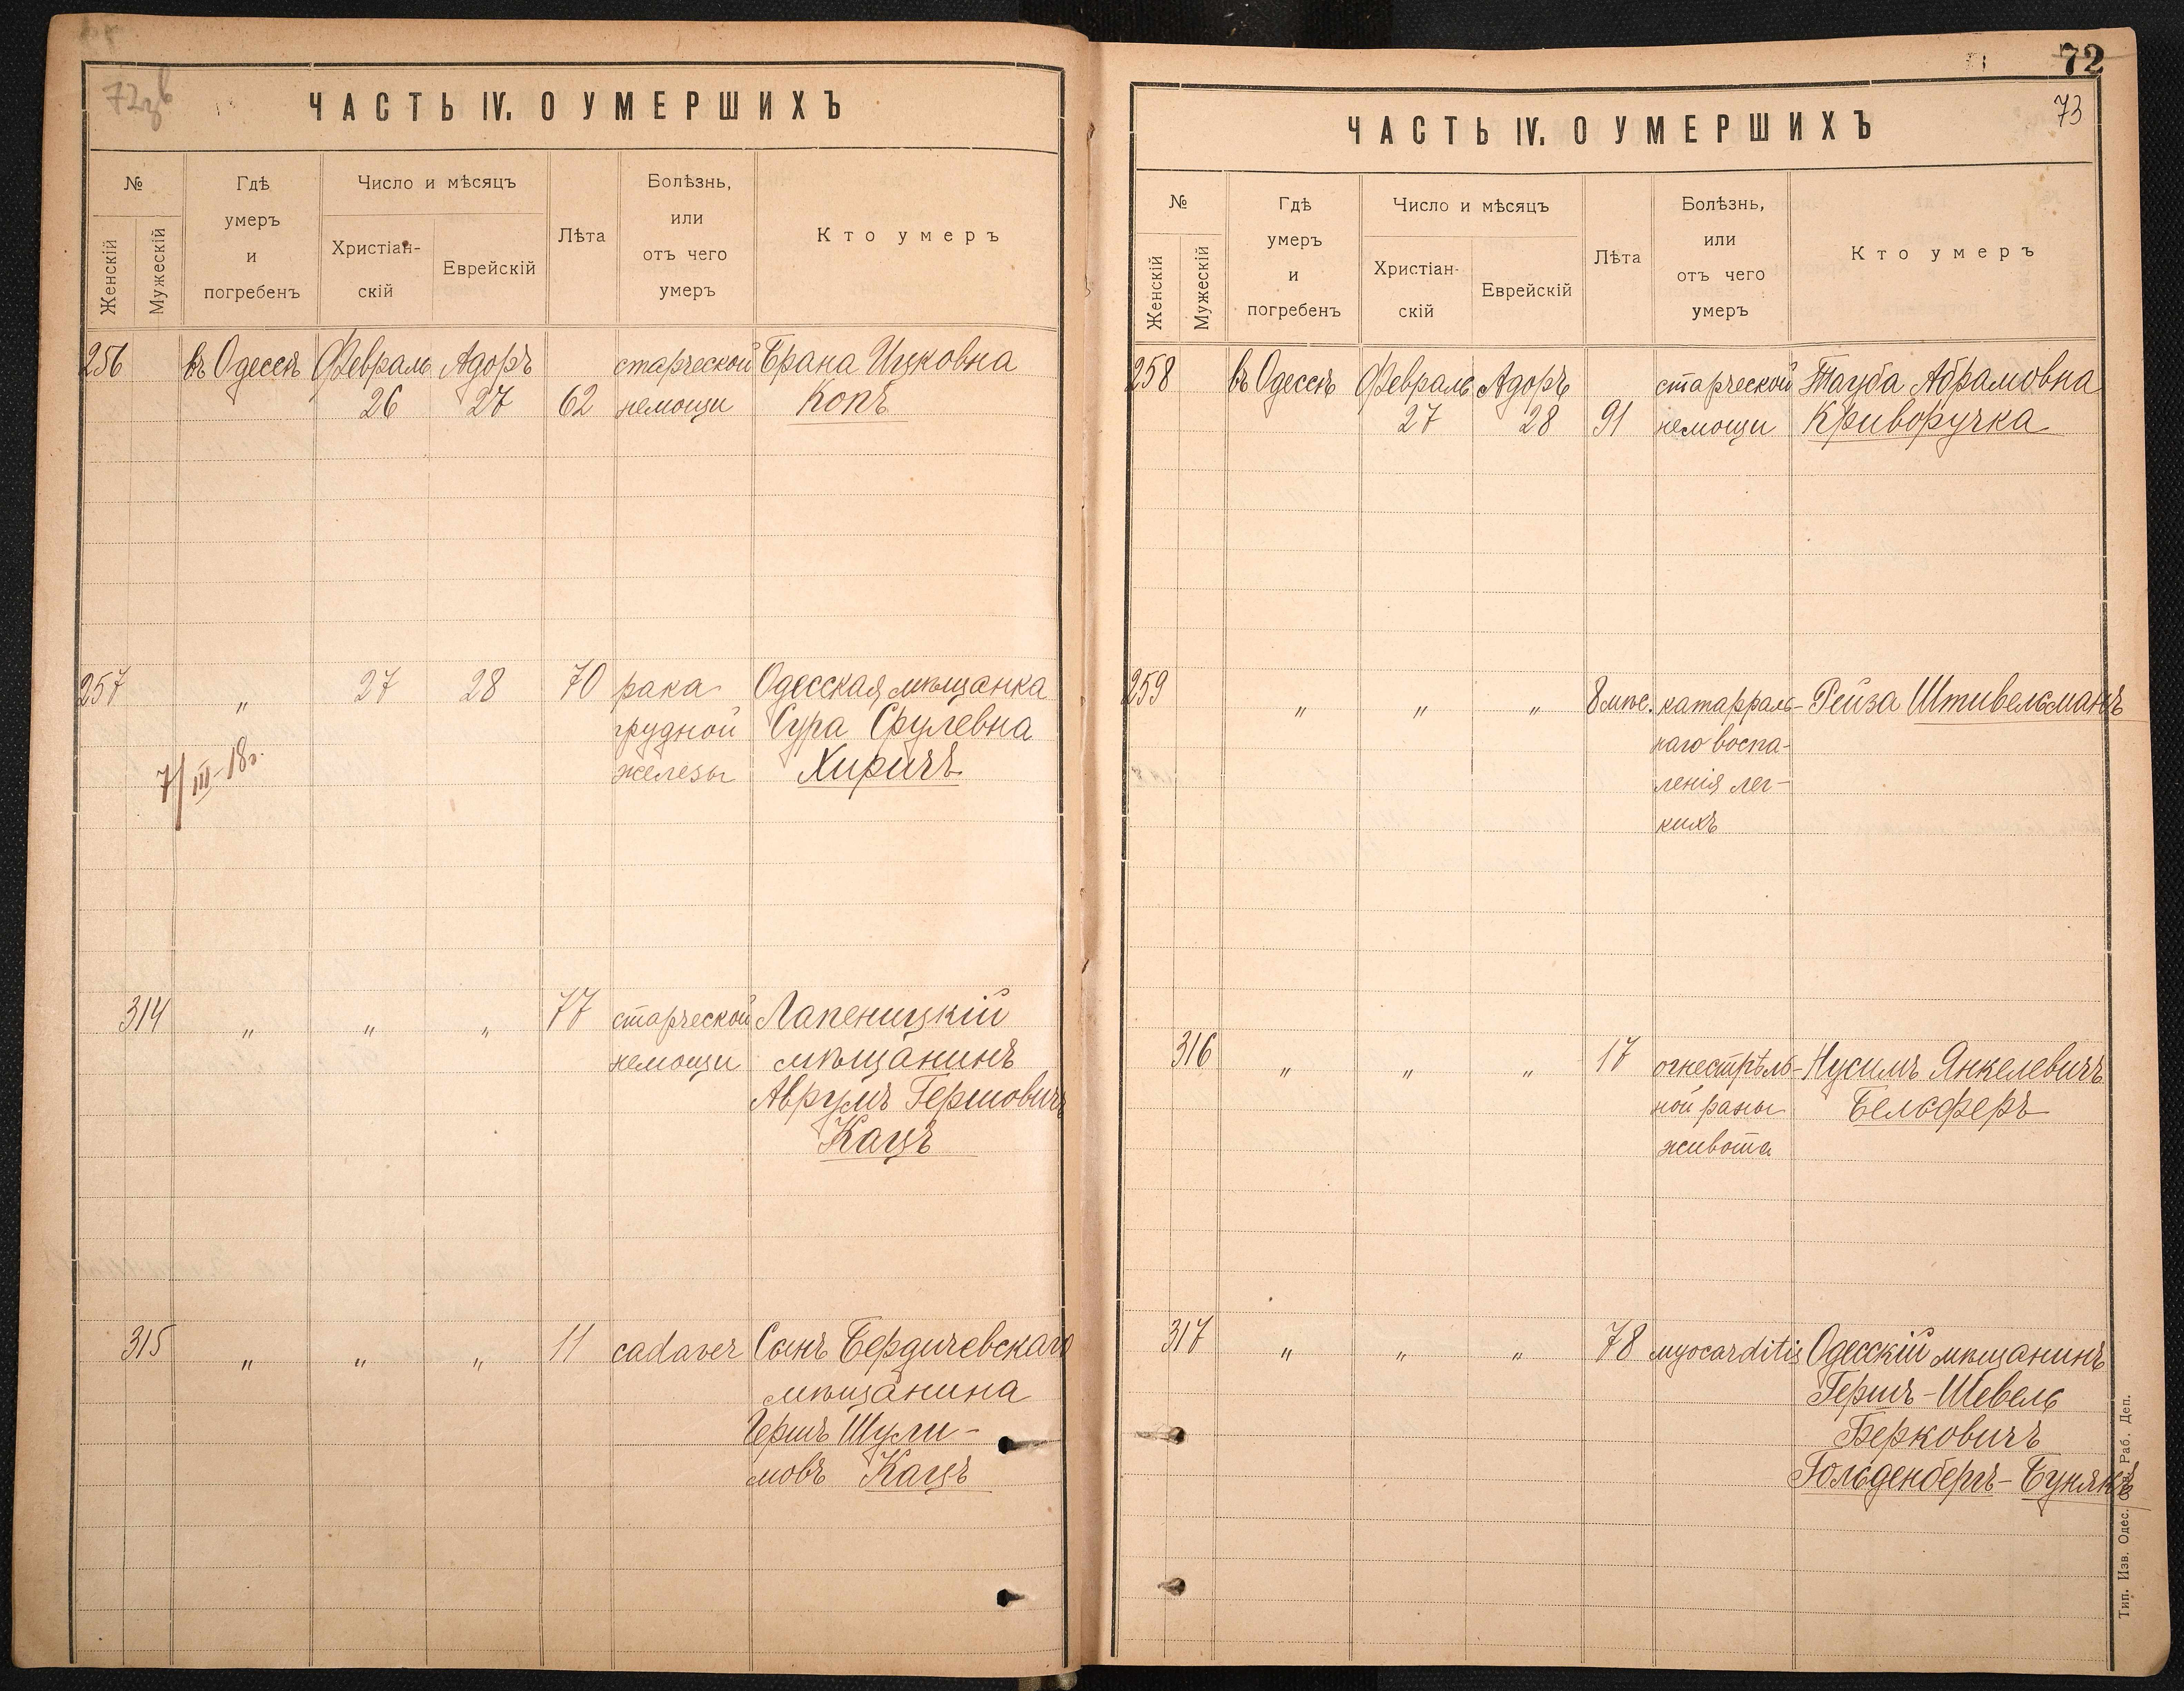 72зв
ЧАСТЬ IV. О УМЕРШИХЪ
№
Женскій
Мужескій
Гдѣ
умеръ
и
погребенъ
Число и мѣсяцъ
Христіан-
скій
Еврейскій
Лѣта
Болѣзнь,
или
отъ чего
умеръ
Кто умеръ
256 въ Одессѣ Февраль Адоръ старческой Брана Ицковна
26 27 62 немощи Копъ
257 " 27 28 70 рака Одесская мѣщанка
грудной Сура Срулевна
железы Хиричъ
7/III-18г.
314 " " " 77 старческой Лапеницкій
немощи мѣщанинъ
Аврумъ Гершовичъ
Кацъ
315 " " " 11 cadaver Сынъ Бердичевскаго
мѣщанина
Гершъ Шули-
мовъ Кацъ
72
73
ЧАСТЬ IV. О УМЕРШИХЪ
№
Женскій
Мужескій
Гдѣ
умеръ
и
погребенъ
Число и мѣсяцъ
Христіан-
скій
Еврейскій
Лѣта
Болѣзнь,
или
отъ чего
умеръ
Кто умеръ
258 въ Одессѣ Февраль Адоръ старческой Тауба Абрамовна
27 28 91 немощи Криворучка
259 " " " 8 мѣс. катарраль- Рейза Штивельманъ
наго воспа-
ленія лег-
кихъ
316 " " " 17 огнестрѣль- Нусимъ Янкелевичъ
ной раны Бельферъ
живота
317 " " " 78 myocarditis Одесскій мѣщанинъ
Гершъ-Шевель
Берковичъ
Гольденбергъ-Бунякъ
Тип. Изв. Одес. Сов. Раб. Деп.